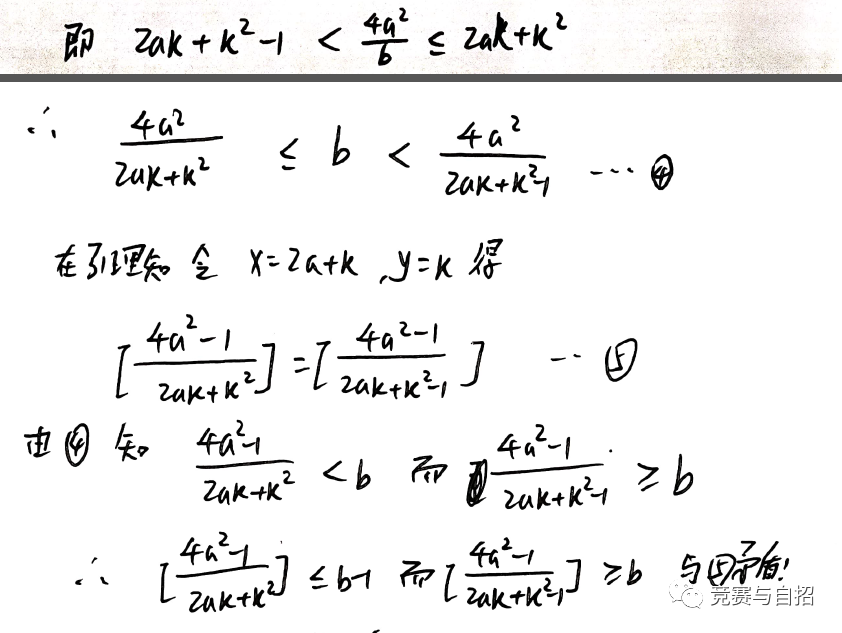 即 2ak+k²-1 < 4a²/b ≤ 2ak+k²
∴ 4a²/(2ak+k²) ≤ b < 4a²/(2ak+k²-1) ... ④
在引理知 令 x=2a+k, y=k 得
[(4a²-1)/(2ak+k²)] = [(4a²-1)/(2ak+k²-1)] ... ⑤
由④知 (4a²-1)/(2ak+k²) < b 而 (4a²-1)/(2ak+k²-1) ≥ b
∴ [(4a²-1)/(2ak+k²)] ≤ b-1 而 [(4a²-1)/(2ak+k²-1)] ≥ b 与⑤矛盾!
竞赛与自招